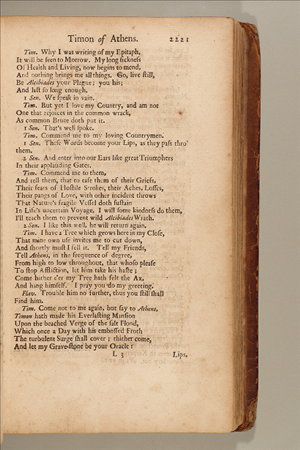 Timon of Athens. 2221
Tim. Why I was writing of my Epitaph,
It will be seen to Morrow. My long sickness
Of Health and Living, now begins to mend,
And nothing brings me all things. Go, live still,
Be Alcibiades your Plague; you his;
And last so long enough.
1 Sen. We speak in vain.
Tim. But yet I love my Country, and am not
One that rejoices in the common wrack,
As common Bruite doth put it.
1 Sen. That's well spoke.
Tim. Commend me to my loving Countrymen.
1 Sen. These Words become your Lips, as they pass thro'
them.
2 Sen. And enter into our Ears like great Triumphers
In their applauding Gates.
Tim. Commend me to them,
And tell them, that to ease them of their Griefs,
Their fears of Hostile Stroke, their Aches, Losses,
Their pangs of Love, with other incident throws
That Nature's fragile Vessel doth sustain
In Life's uncertain Voyage, I will some kindness do them,
I'll teach them to prevent wild Alcibiades Wrath.
2 Sen. I like this well, he will return again.
Tim. I have a Tree which grows here in my Close,
That mine own use invites me to cut down,
And shortly must I fell it. Tell my Friends,
Tell Athens, in the frequence of degree,
From high to low throughout, that whoso please
To stop Affliction, let him take his haste;
Come hither e'er my Tree hath felt the Ax,
And hang himself. I pray you do my greeting.
Flav. Trouble him no further, thus you still shall
Find him.
Tim. Come not to me again, but say to Athens,
Timon hath made his Everlasting Mansion
Upon the beached Verge of the salt Flood,
Which once a Day with his embossed Froth
The turbulent Surge shall cover; thither come,
And let my Grave-stone be your Oracle:
L 3 Lips,